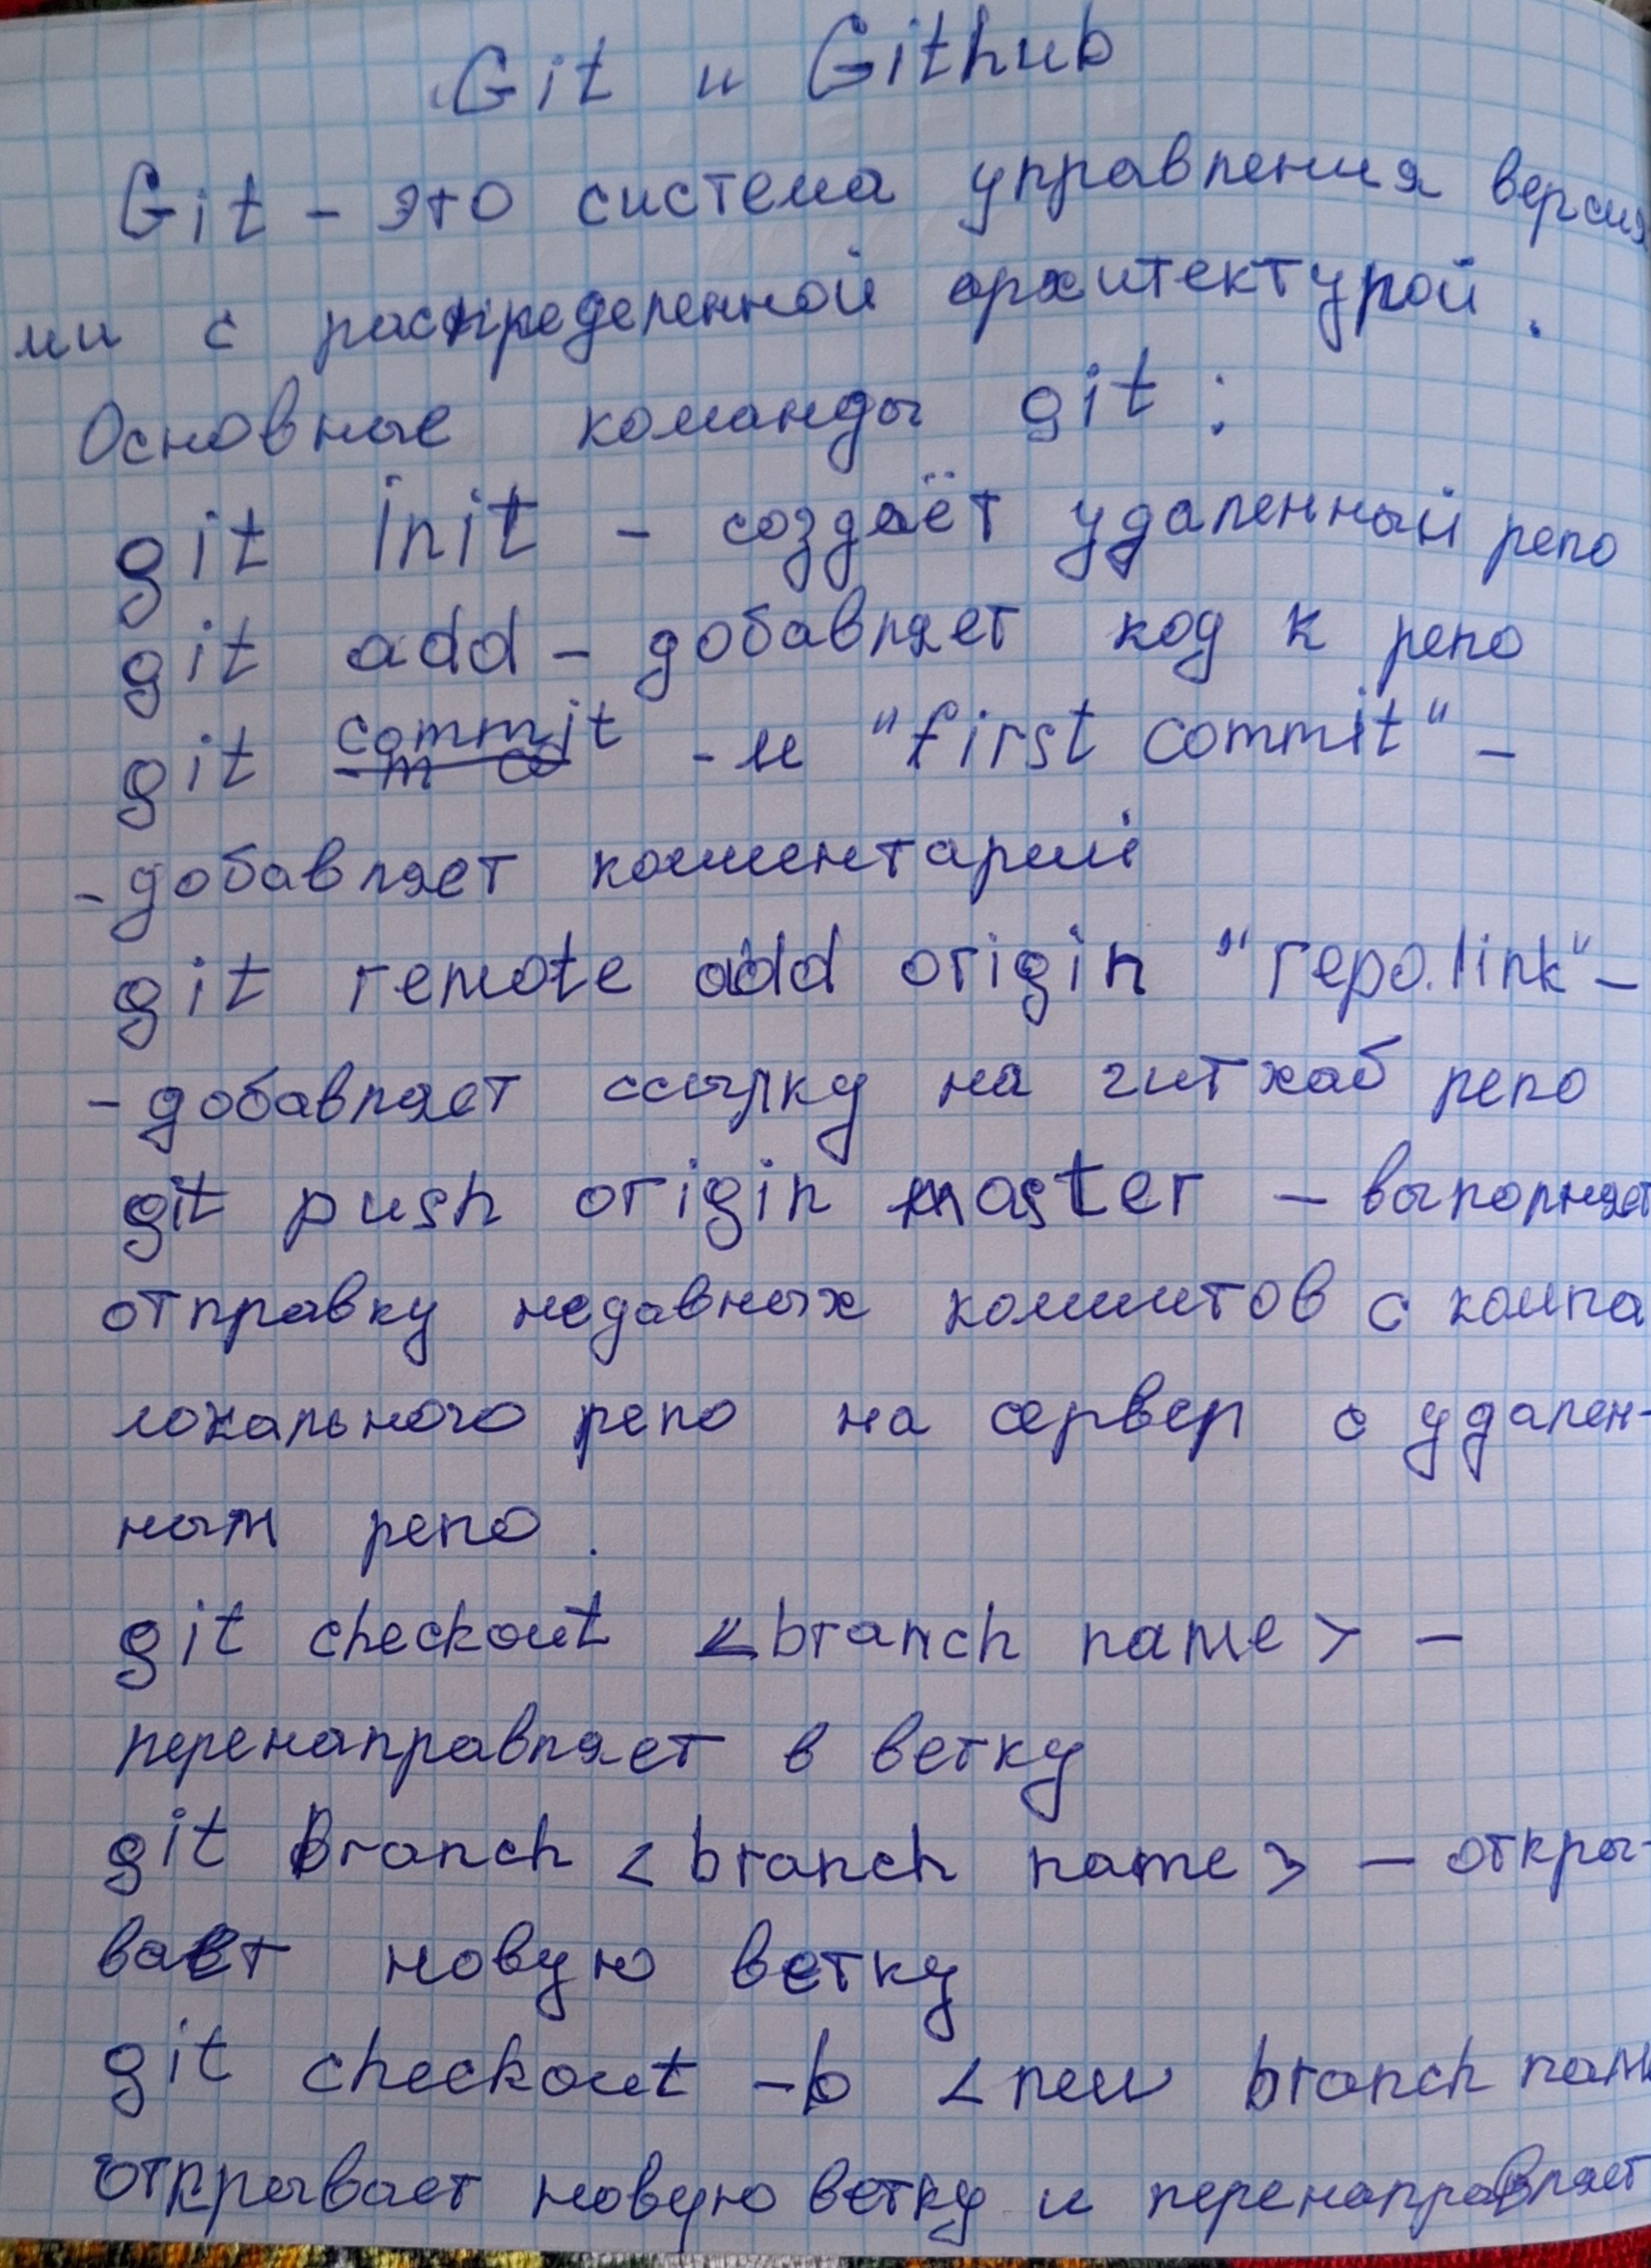 Git и Github
Git - это система управления версия
ми с распределенной архитектурой.
Основные команды git:
git init - создаёт удаленный репо
git add - добавляет код к репо
git commit -м "first commit" -
- добавляет комментарий
git remote add origin "repo.link" -
- добавляет ссылку на гитхаб репо
git push origin master - выполняет
отправку недавных коммитов с компа
локального репо на сервер с удален-
ным репо.
git checkout <branch name> -
перенаправляет в ветку
git branch <branch name> - откры-
вает новую ветку
git checkout -b <new branch name
открывает новую ветку и перенаправляет